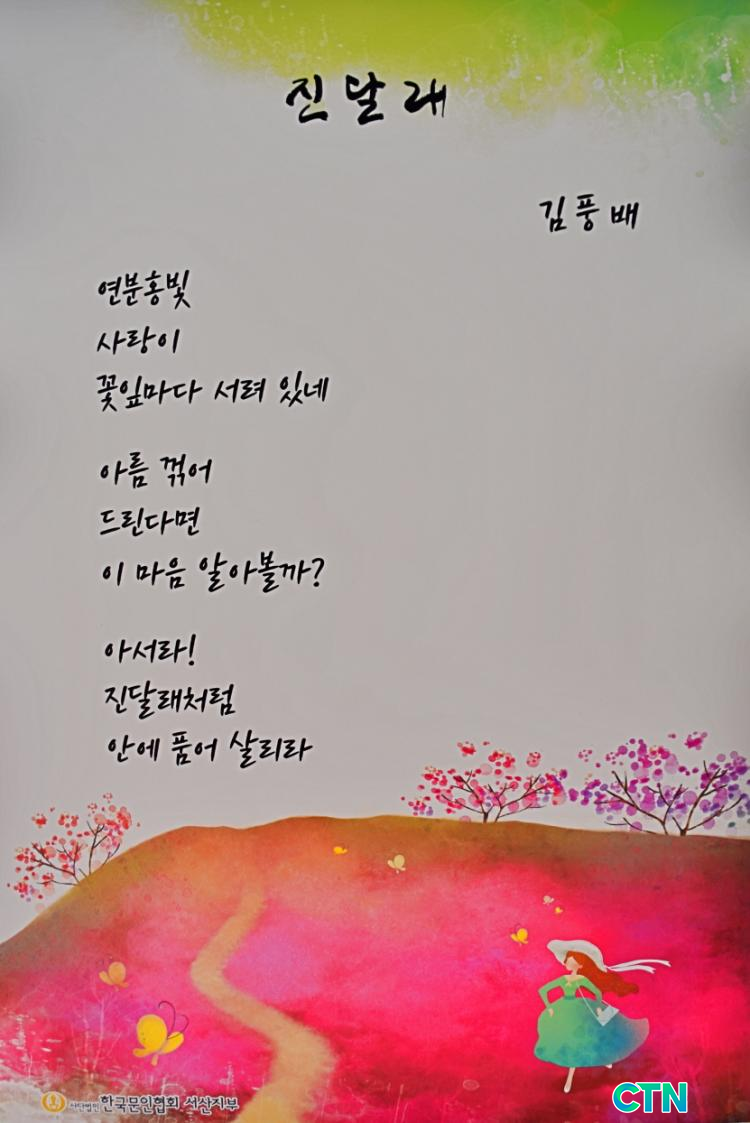 진달래
김풍배
연분홍빛
사랑이
꽃잎마다 서려 있네
아름 꺾어
드린다면
이 마음 알아볼까?
아서라!
진달래처럼
안에 품어 살리라
사단법인 한국문인협회 서산지부
CTN